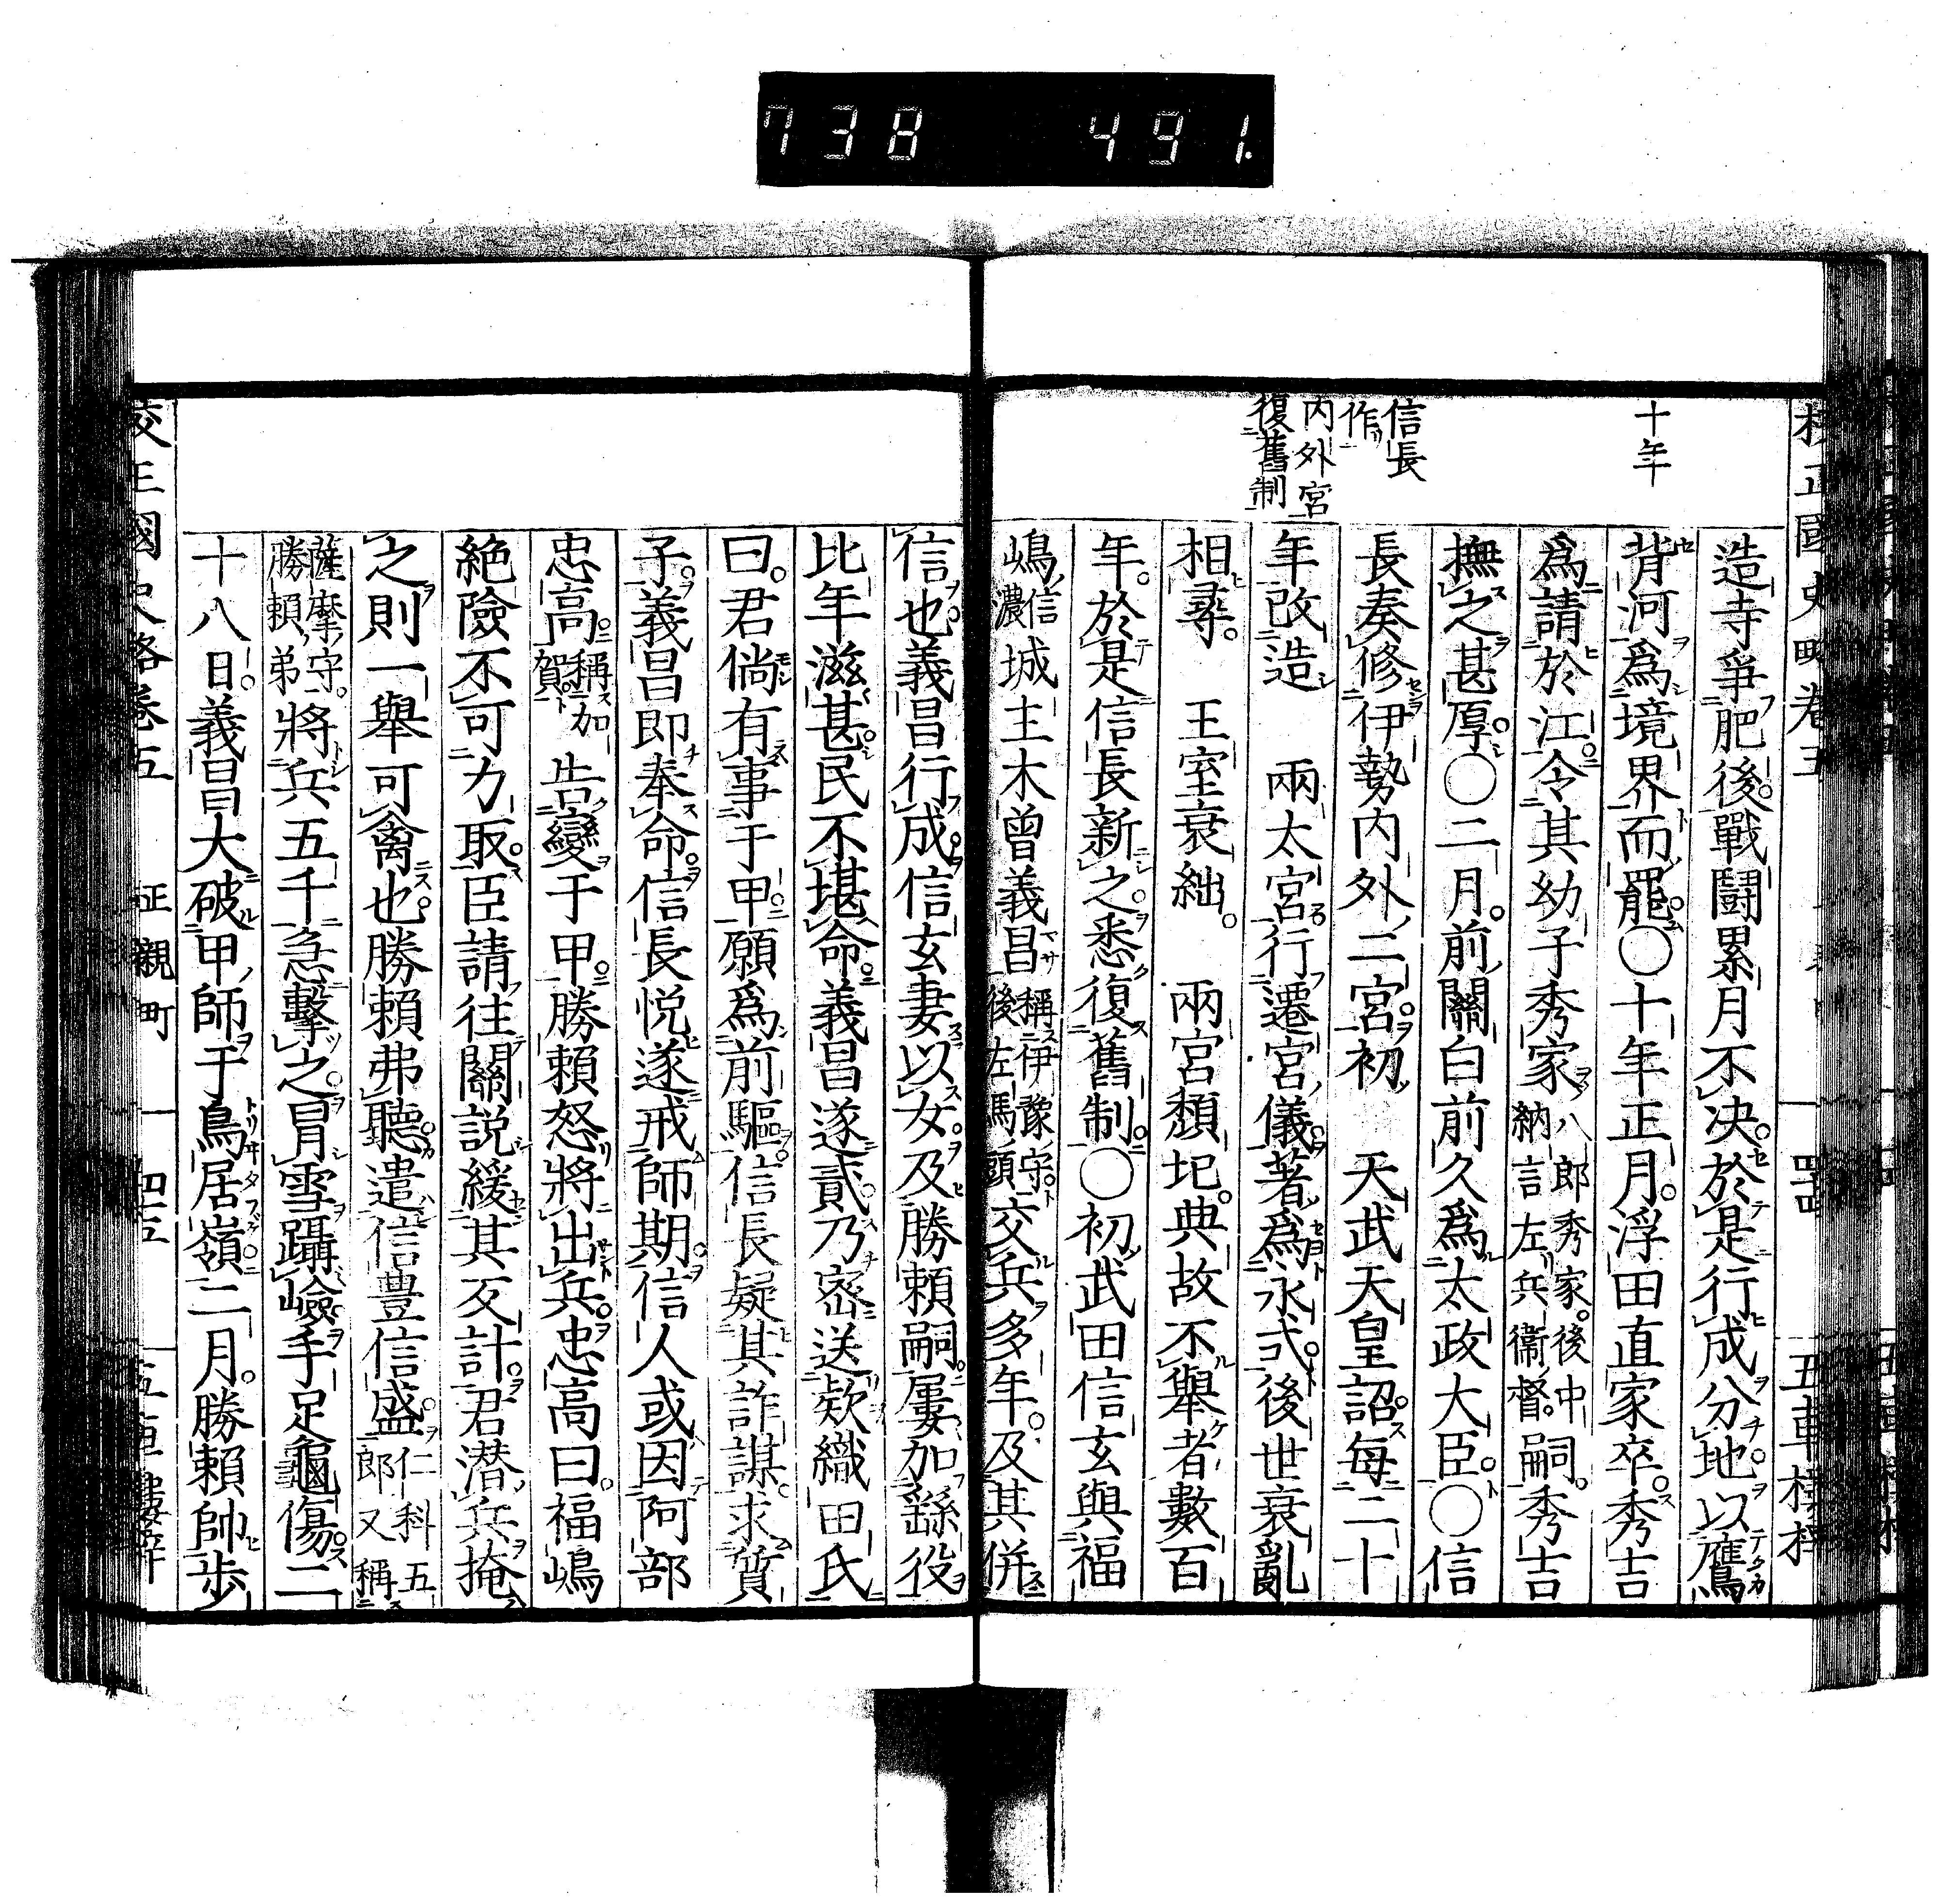 738 491.
十年
信長
作
内外宮
復舊制
造寺爭肥後。戰鬪累月不决。於是行成分地。以鷹
背河爲境界而罷。〇十年正月。浮田直家卒。秀吉
爲請於江。令其幼子秀家八郎秀家。後中納言左兵衞督。嗣。秀吉
撫之甚厚。〇二月。前關白前久爲太政大臣。〇信
長奏修伊勢内外二宮。初 天武天皇詔每二十
年改造 兩太宮行遷宮儀。著爲永式。後世衰亂
相尋。 王室衰絀。 兩宮頽圮。典故不舉者數百
年。於是信長新之。悉復舊制。〇初武田信玄與福
嶋信濃城主木曾義昌稱伊豫守。後左馬頭交兵多年。及其併
信也。義昌行成。信玄妻以女。及勝賴嗣。屢加繇役
比年滋甚。民不堪命。義昌遂貳。乃密送欵織田氏
曰。君倘有事于甲。願爲前驅。信長疑其詐謀。求質
子。義昌即奉命。信長悦遂戒師期。信人或因阿部
忠高稱加賀。告變于甲。勝賴怒將出兵。忠高曰。福嶋
絶險不可力取。臣請往關說緩其反計。君潛兵掩
之則一舉可禽也。勝賴弗聽。遣信豊信盛仁科五郎又稱
薩摩守。勝賴弟將兵五千急擊之。冒雪躡嶮。手足龜傷。二
十八日。義昌大破甲師于鳥居嶺。二月。勝賴帥步
校正國史略卷五 正親町 四五